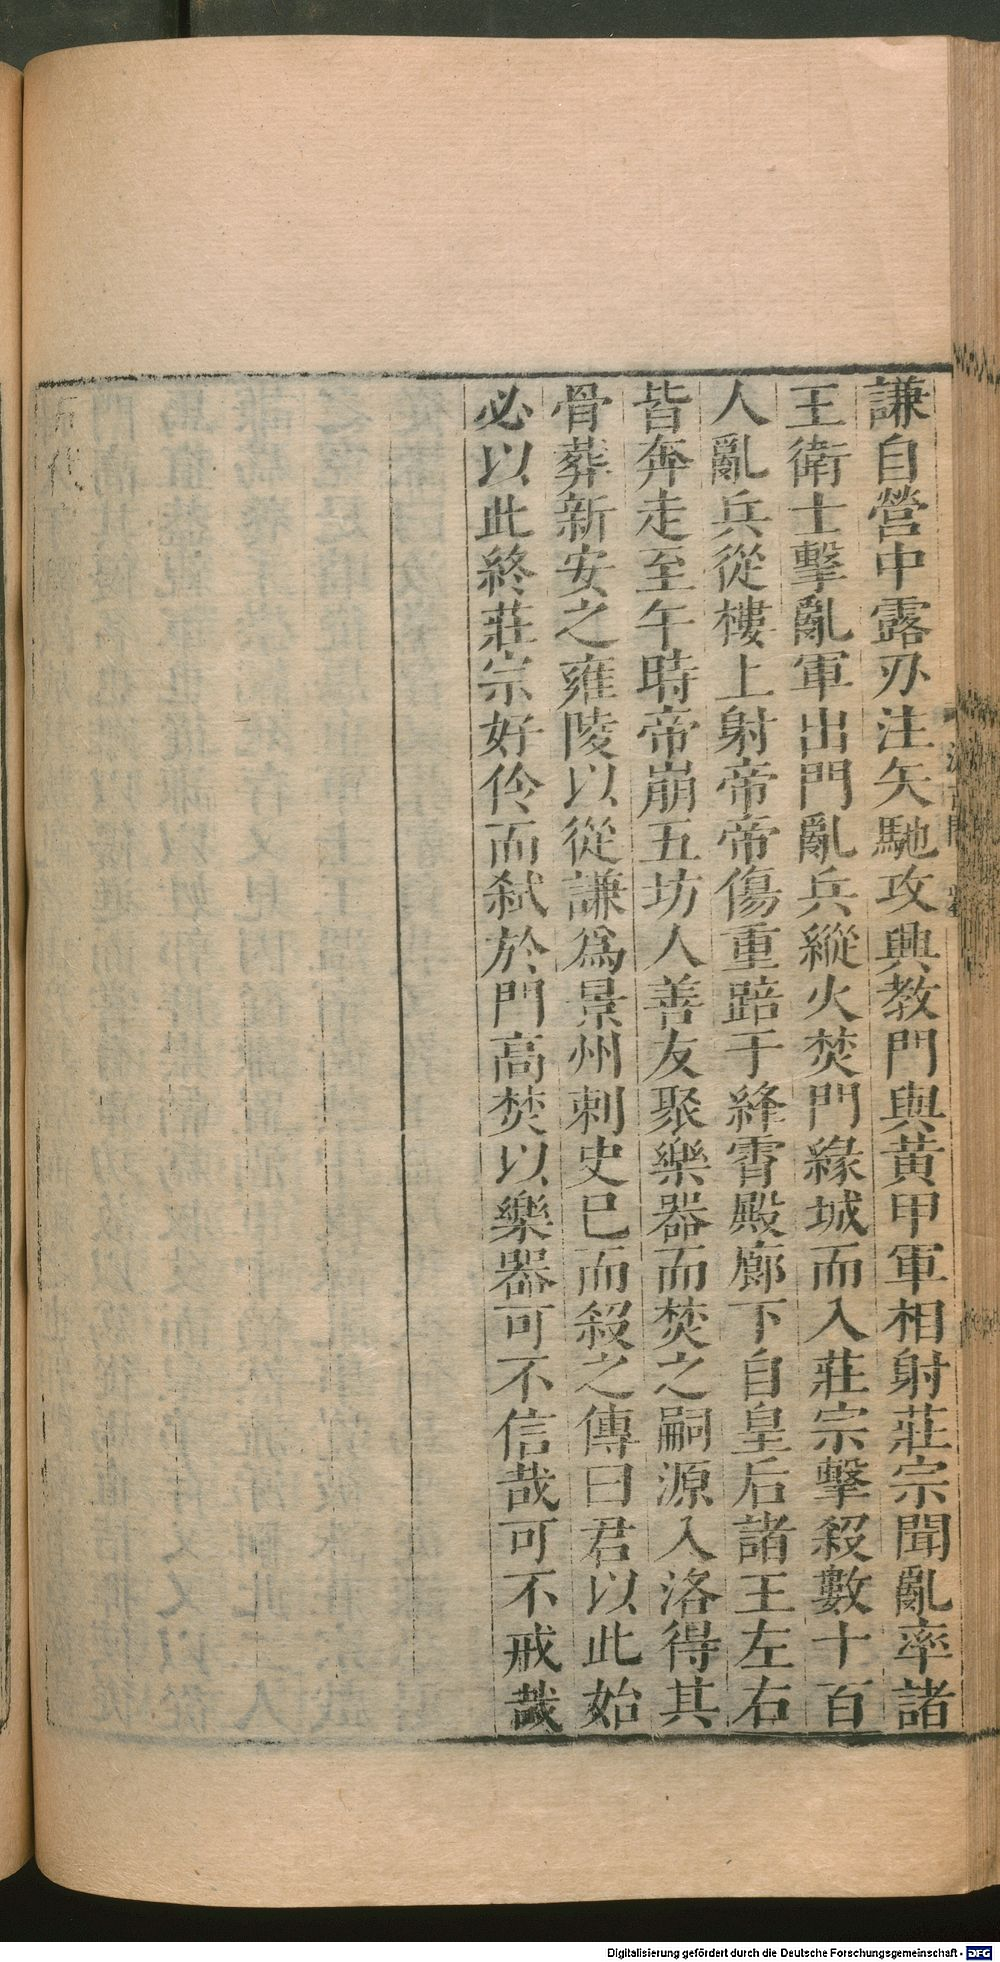 謙自營中露刃注矢馳攻興教門與黃甲軍相射莊宗聞亂率諸
王衛士擊亂軍出門亂兵縱火焚門緣城而入莊宗擊殺數十百
人亂兵從樓上射帝帝傷重踣于絳霄殿廊下自皇后諸王左右
皆奔走至午時帝崩五坊人善友聚樂器而焚之嗣源入洛得其
骨葬新安之雍陵以從謙爲景州刺史巳而殺之傳曰君以此始
必以此終莊宗好伶而弑於門高焚以樂器可不信哉可不戒哉
Digitalisierung gefördert durch die Deutsche Forschungsgemeinschaft - DFG